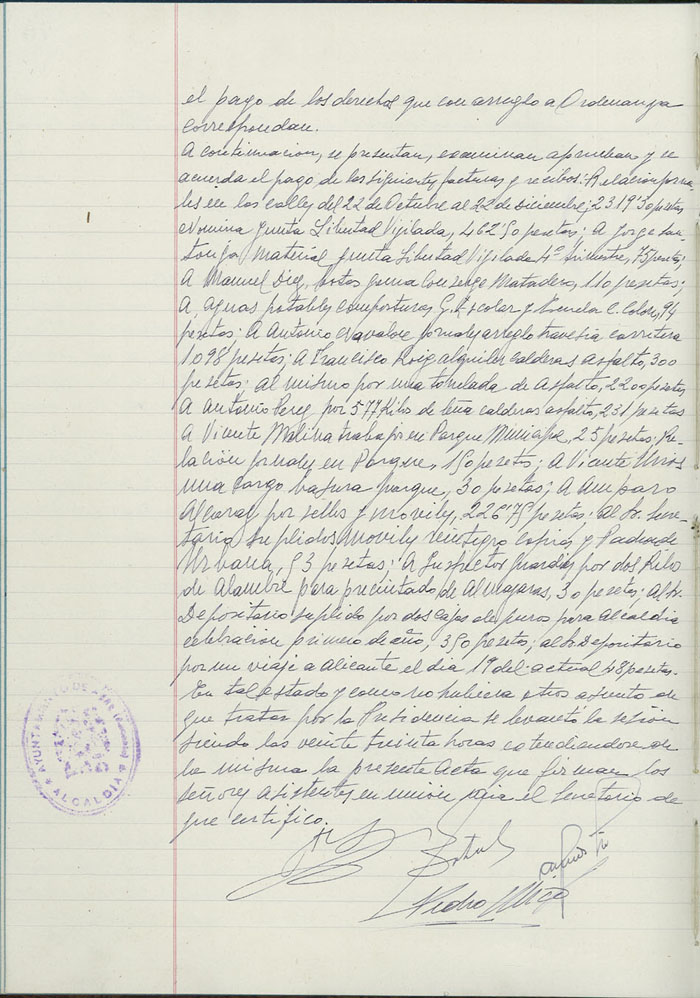 el pago de los derechos que con arreglo a Ordenanza
correspondan.
A continuacion, se presentan, examinan aprueban y se
acuerda el pago de las siguientes facturas y recibos: Relacion jorna-
les en las calles del 22 de Octubre al 22 de Diciembre; 23.19'30 pesetas
Nomina Junta Libertad Vigilada, 462'50 pesetas; A Jorge San-
tonja Material Junta Libertad Vigilada 4º trimestre, 75 pesetas;
A Manuel Diez, botas goma Conserge Matadero, 110 pesetas;
A, aguas potables composturas G. Escolar y Escuela C. Colon, 94
pesetas; A Antonio Navalon jornales arreglo travesia carretera
1.098 pesetas; A Francisco Roig alquiler calderas asfalto, 300
pesetas; al mismo por una tonelada de Asfalto, 2.200 pesetas
A Antonio Perez por 577 Kilos de leña calderas asfalto, 231 pesetas
A Vicente Molina trabajos en Parque Municipal, 25 pesetas; Re-
lación jornales en Parque, 150 pesetas; A Vicente
una carga basura parque, 30 pesetas; A Amparo
Alcaraz por sellos y moviles, 226'75 pesetas; al Sr. Secre-
tario suplidos moviles reintegro copias y Padron de
Urbana, 53 pesetas; A Inspector Guardias por dos Kilos
de Alambre para precintado de Almazaras, 30 pesetas; Al Sr.
Depositario suplido por dos cajas de puros para Alcaldia
celebración primero de año, 350 pesetas; al Sr. Depositario
por un viaje a Alicante el dia 19 del actual 48 pesetas.
En tal estado y como no hubiera otros asuntos de
que tratar por la Presidencia se levantó la sesión
siendo las veinte treinta horas extendiendose de
la misma la presente Acta que firman los
señores asistentes en unión el Secretario de
que certifico.
Pedro
AYUNTAMIENTO DE
ALCALDIA